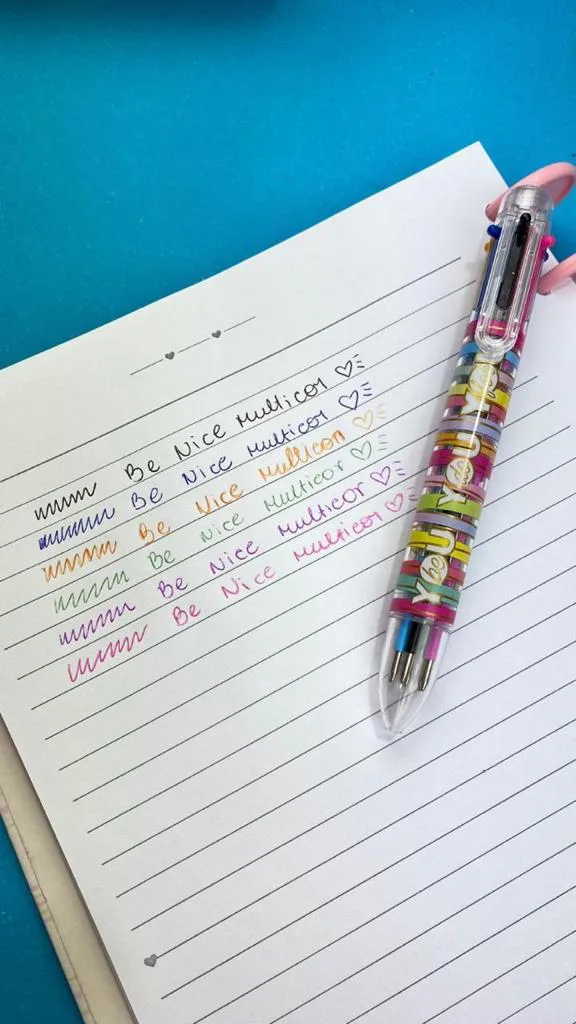 Be Nice Multicor
Be Nice Multicor
Be Nice Multicor
Be Nice Multicor
Be Nice Multicor
Be Nice Multicor
YOU be YOU do YOU